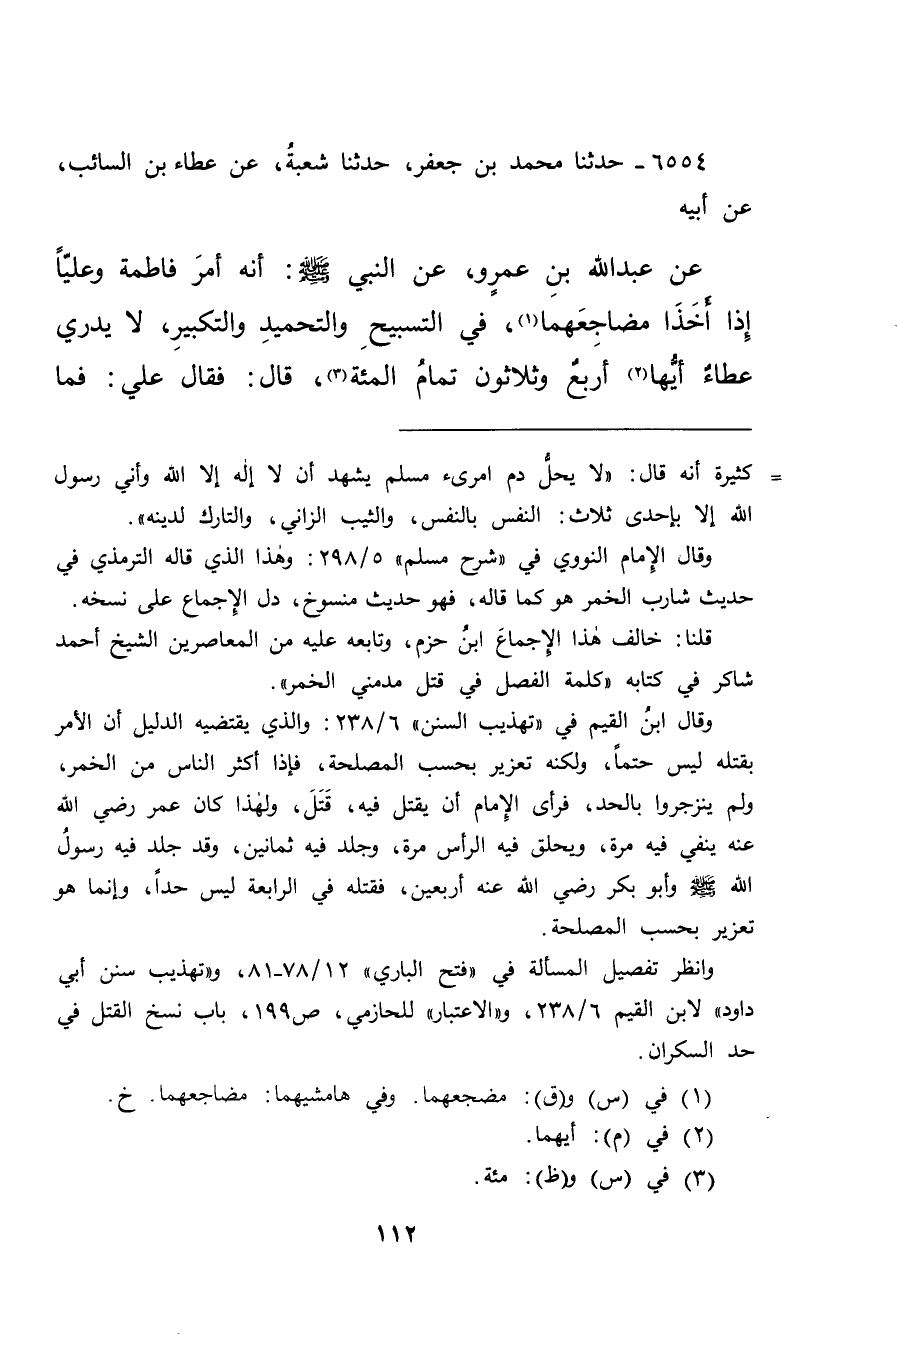 ٦٥٥٤ ـ حدثنا محمد بن جعفر، حدثنا شعبةُ، عن عطاء بن السائب،
عن أبيه
عن عبدالله بنِ عمرٍو، عن النبي ﷺ: أنه أمرَ فاطمة وعليّاً
إِذا أَخَذَا مضاجِعَهما(١)، في التسبيحِ والتحميدِ والتكبيرِ، لا يدري
عطاءٌ أيُّها(٢) أربعٌ وثلاثون تمامُ المئة(٣)، قال: فقال علي: فما
= كثيرة أنه قال: «لا يحلُّ دم امرىء مسلم يشهد أن لا إلٰه إلا الله وأني رسول
الله إلا بإحدى ثلاث: النفس بالنفس، والثيب الزاني، والتارك لدينه».
وقال الإمام النووي في «شرح مسلم» ٢٩٨/٥: وهٰذا الذي قاله الترمذي في
حديث شارب الخمر هو كما قاله، فهو حديث منسوخ، دل الإجماع على نسخه.
قلنا: خالف هٰذا الإجماعَ ابنُ حزم، وتابعه عليه من المعاصرين الشيخ أحمد
شاكر في كتابه «كلمة الفصل في قتل مدمني الخمر».
وقال ابنُ القيم في «تهذيب السنن» ٢٣٨/٦: والذي يقتضيه الدليل أن الأمر
بقتله ليس حتماً، ولكنه تعزير بحسب المصلحة، فإذا أكثر الناس من الخمر،
ولم ينزجروا بالحد، فرأى الإمام أن يقتل فيه، قَتَلَ، ولهٰذا كان عمر رضي الله
عنه ينفي فيه مرة، ويحلق فيه الرأس مرة، وجلد فيه ثمانين، وقد جلد فيه رسولُ
الله ﷺ وأبو بكر رضي الله عنه أربعين، فقتله في الرابعة ليس حداً، وإنما هو
تعزير بحسب المصلحة.
وانظر تفصيل المسألة في «فتح الباري» ٧٨/١٢ـ٨١، و«تهذيب سنن أبي
داود» لابن القيم ٢٣٨/٦، و«الاعتبار» للحازمي، ص١٩٩، باب نسخ القتل في
حد السكران.
(١) في (س) و(ق): مضجعهما. وفي هامشيهما: مضاجعهما. خ.
(٢) في (م): أيهما.
(٣) في (س) و(ظ): مئة.
١١٢